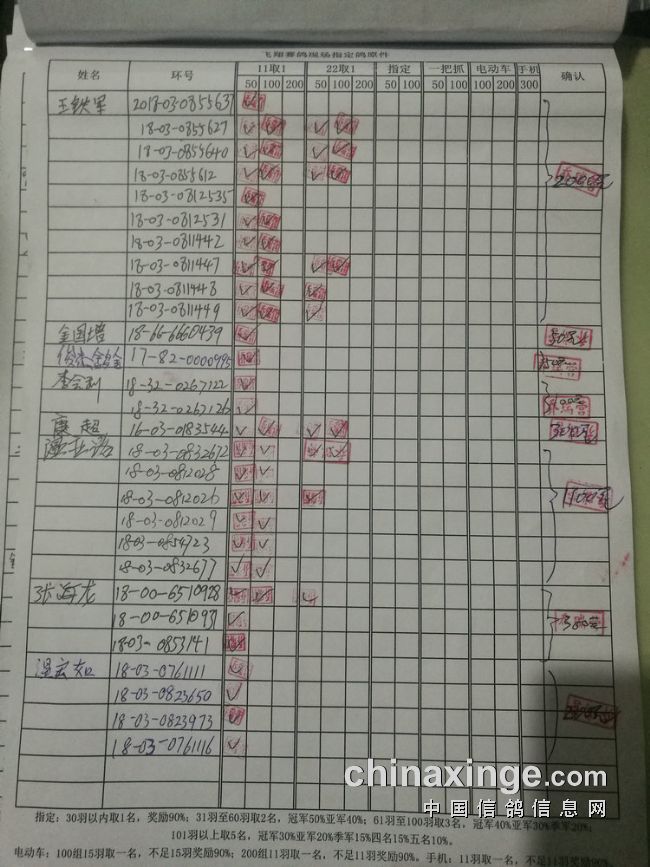 飞翔赛鸽现场指定鸽原件
姓名 环号 11取1 22取1 指定 一把抓 电动车 手机 确认
50 100 200 50 100 200 50 100 50 100 100 200 300
王铁军 2018-03-0855637
18-03-0855627
18-03-0855640
18-03-0855612
18-03-0812535
18-03-0812531
18-03-0811442
18-03-0811447
18-03-0811448
18-03-0811449
18-66-6660439
17-82-0000995
李会利 18-32-0267122
18-32-0267126
康超 16-03-0183544
18-03-0832672
18-03-0812028
18-03-0812026
18-03-0812029
18-03-0854723
18-03-0832677
张海龙 18-00-6510928
18-00-6510931
18-03-0853141
18-03-0761111
18-03-0823650
18-03-0823973
18-03-0761116
chinaxinge.com
中国信鸽信息网
指定：30羽以内取1名，奖励90%；31羽至60羽取2名，冠军50%亚军40%；61羽至100羽取3名，冠军40%亚军30%季军20%；
101羽以上取5名，冠军30%亚军20%季军15%四名15%五名10%。
电动车：100组15羽取一名，不足15羽奖励90%；200组11羽取一名，不足11羽奖励90%。手机：11羽取一名，不足11羽奖励90%。